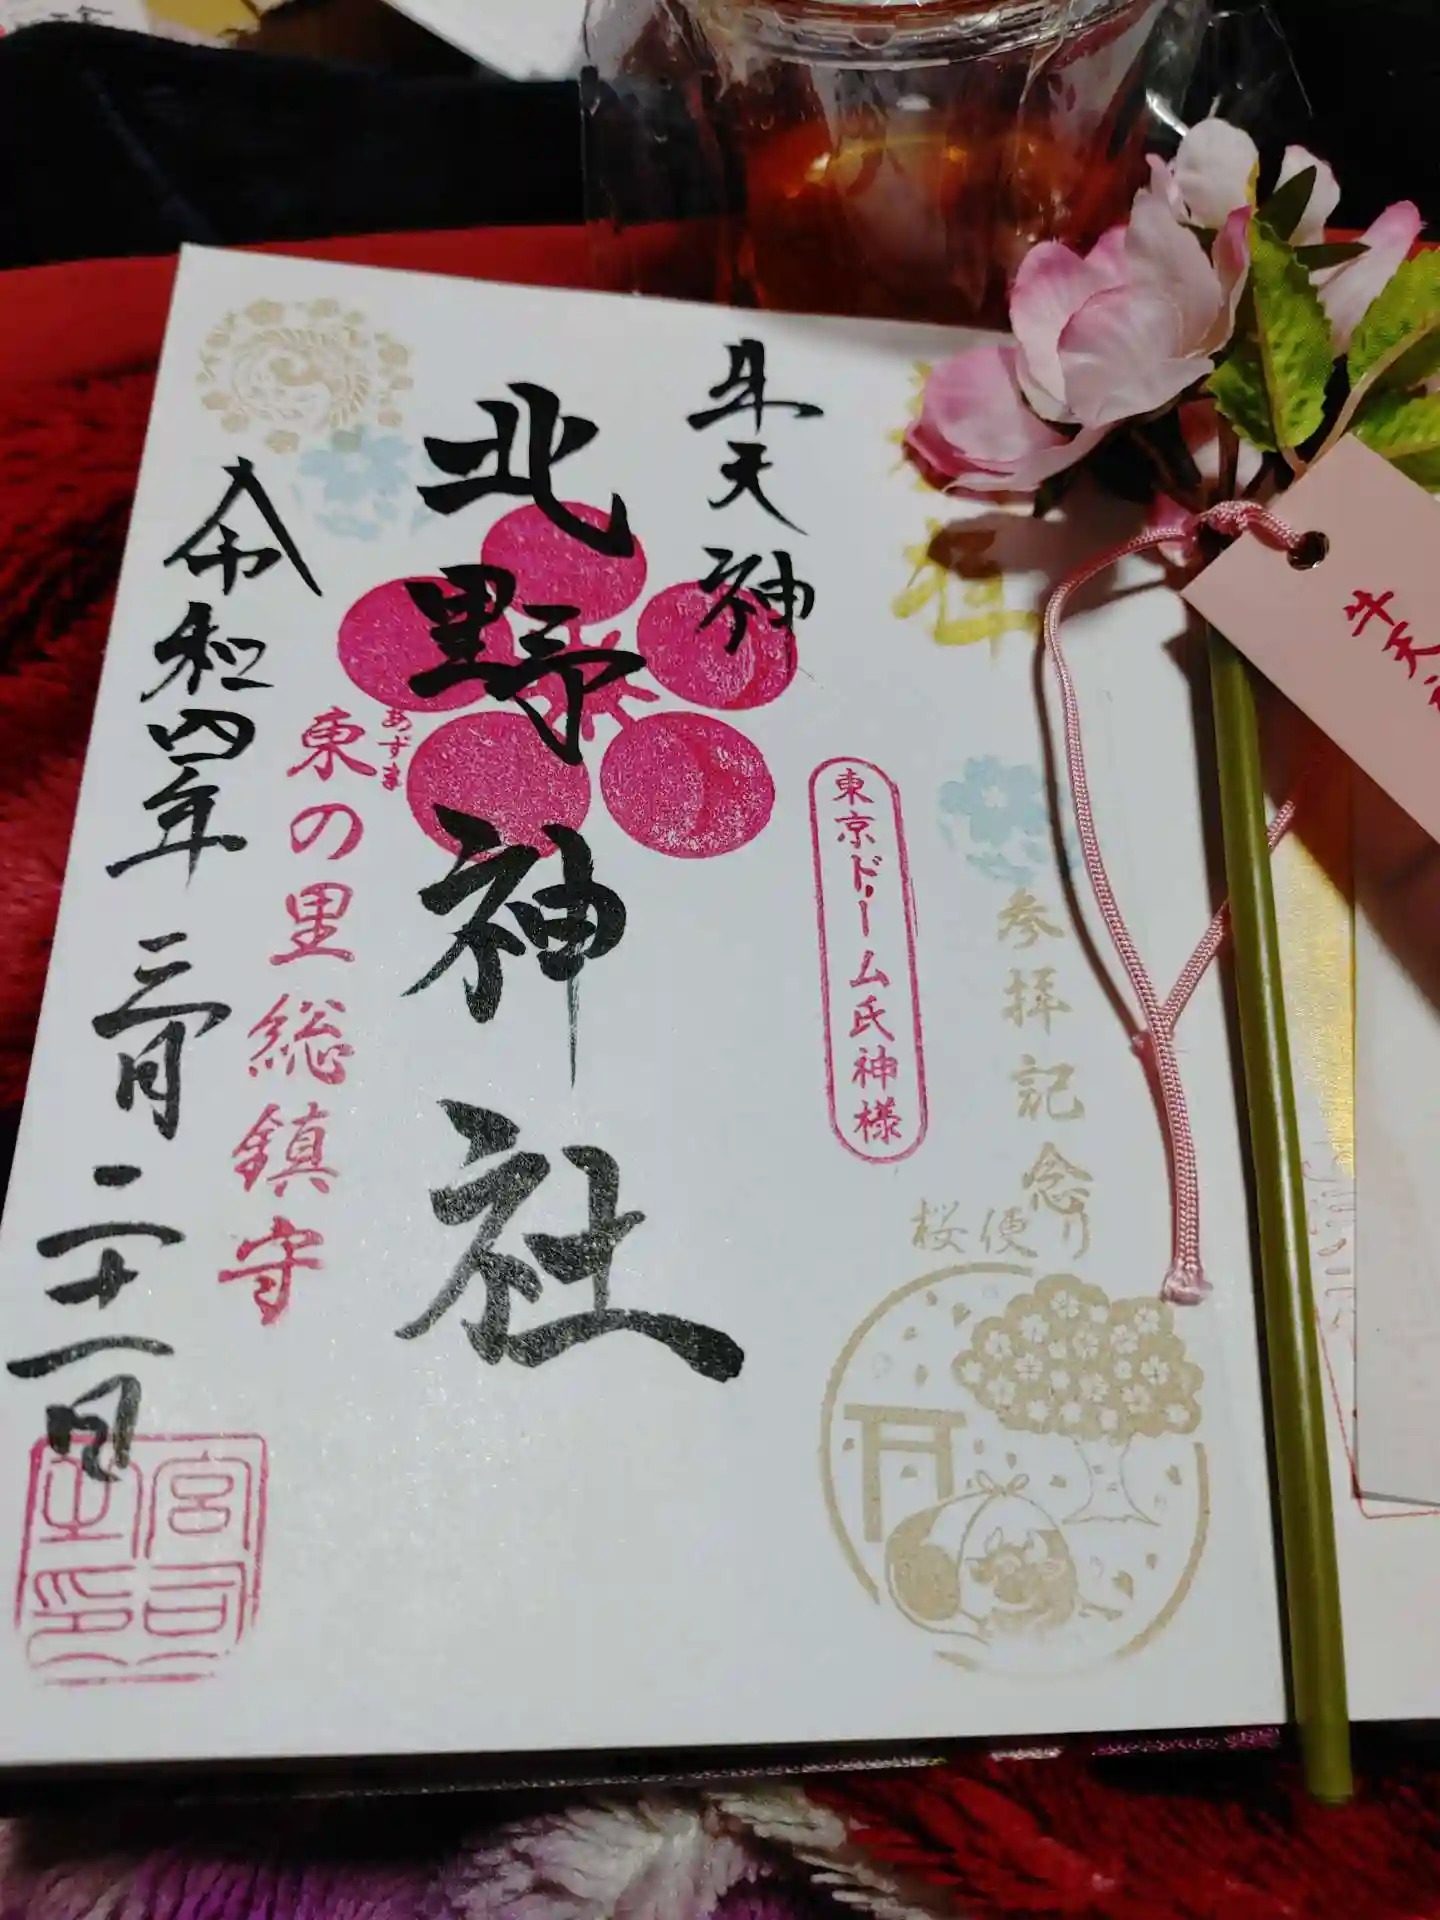 参拝記念
桜便り
東京ドーム氏神様
牛天神
北野神社
東の里総鎮守
あずま
令和四年 三月 二十一日
宮司
之印
牛天